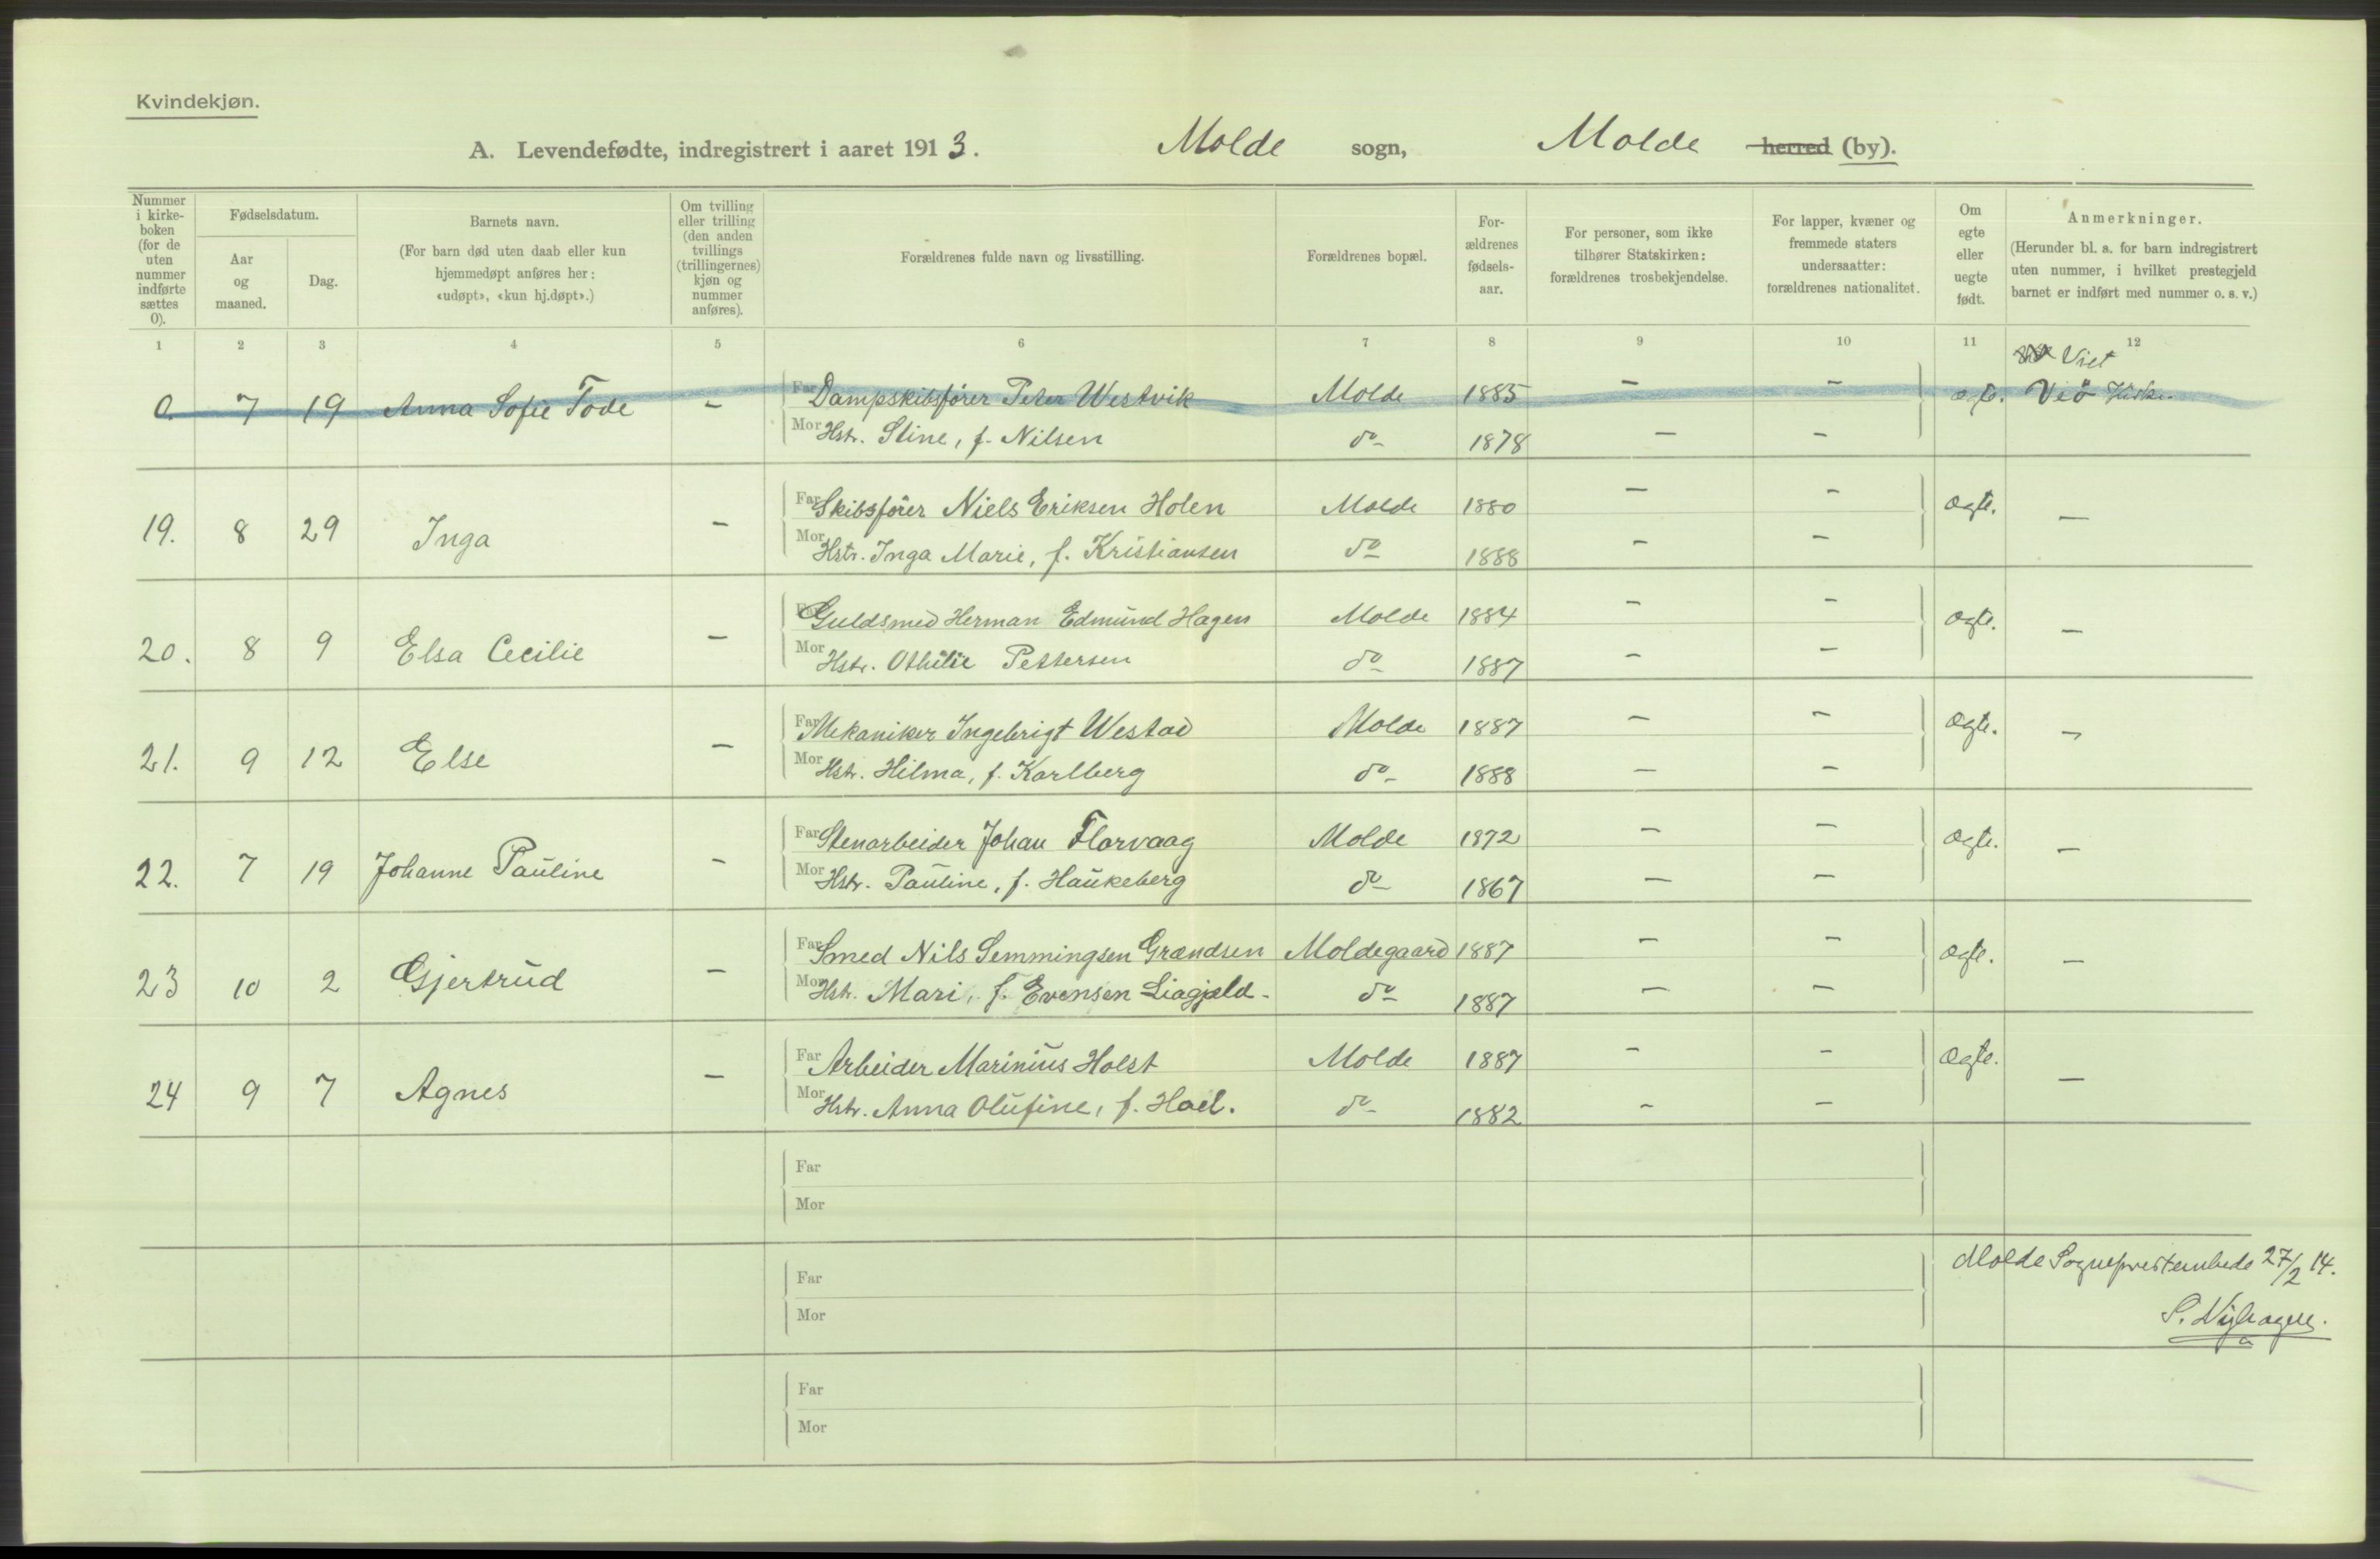 Kvindekjøn.
A. Levendefødte, indregistrert i aaret 1913. Molde sogn, Molde herred (by).
Nummer i kirke-boken (for de uten nummer indførte sættes 0).
Fødselsdatum.
Aar og maaned.
Dag.
Barnets navn.
(For barn død uten daab eller kun hjemmedøpt anføres her: «udøpt», «kun hj.døpt».)
Om tvilling eller trilling (den anden tvillings (trillingernes) kjøn og nummer anføres).
Forældrenes fulde navn og livsstilling.
Forældrenes bopæl.
For-ældrenes fødsels-aar.
For personer, som ikke tilhører Statskirken: forældrenes trosbekjendelse.
For lapper, kvæner og fremmede staters undersaatter: forældrenes nationalitet.
Om egte eller uegte født.
Anmerkninger.
(Herunder bl. a. for barn indregistrert uten nummer, i hvilket prestegjeld barnet er indført med nummer o. s. v.)
1 2 3 4 5 6 7 8 9 10 11 12
0. 7 19 Anna Sofie Tode – Far Dampskibsfører Peter Westvik Molde 1885 – – Veö Kirke.
Mor Hstr. Stine, f. Nilsen do- 1878 – –
19. 8 29 Inga – Far Skibsfører Niels Eriksen Holen Molde 1880 – – ægte. –
Mor Hstr. Inga Marie, f. Kristiansen do 1888 – –
20. 8 9 Elsa Cecilie – Far Guldsmed Herman Edmund Hagen Molde 1884 – – ægte. –
Mor Hstr. Othilie Pettersen do 1887 – –
21. 9 12 Else – Far Mekaniker Ingebrigt Westad Molde 1887 – – ægte. –
Mor Hstr. Hilma, f. Karlberg do- 1888 – –
22. 7 19 Johanne Pauline – Far Stenarbeider Johan Florvaag Molde 1872 – – ægte. –
Mor Hstr. Pauline, f. Haukeberg do- 1867 – –
23 10 2 Gjertrud – Far Smed Nils Semmingsen Grændsen Moldegaard 1887 – – ægte. –
Mor Hstr. Mari, f. Evensen Liagjæld. do- 1887 – –
24 9 7 Agnes – Far Arbeider Marinius Holst Molde 1887 – – ægte. –
Mor Hstr. Anna Olufine, f. Hoel. do- 1882 – –
Far
Mor
Far
Molde Sogneprestembede 27/2 14.
Mor
Far
Mor